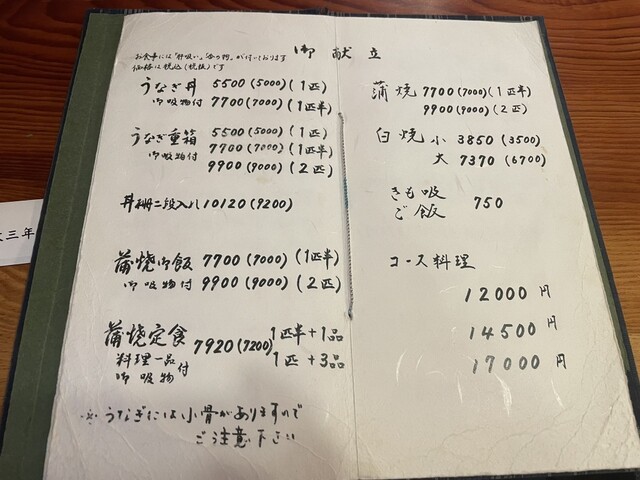 御献立
お食事には「肝吸い」「香の物」が付いております
価格は税込(税抜)です
うなぎ丼 5500(5000)(1匹)
御吸物付 7700(7000)(1匹半)
うなぎ重箱 5500(5000)(1匹)
御吸物付 7700(7000)(1匹半)
9900(9000)(2匹)
丼 二段入り 10120(9200)
蒲焼御飯 7700(7000)(1匹半)
御吸物付 9900(9000)(2匹)
蒲焼定食 7920(7200) 1匹半+1品
料理一品 御吸物 付 1匹+3品
※うなぎには小骨がありますので
ご注意下さい
蒲焼 7700(7000)(1匹半)
9900(9000)(2匹)
白焼 小 3850(3500)
大 7370(6700)
きも吸
ご飯 750
コース料理
12000円
14500円
17000円
三年